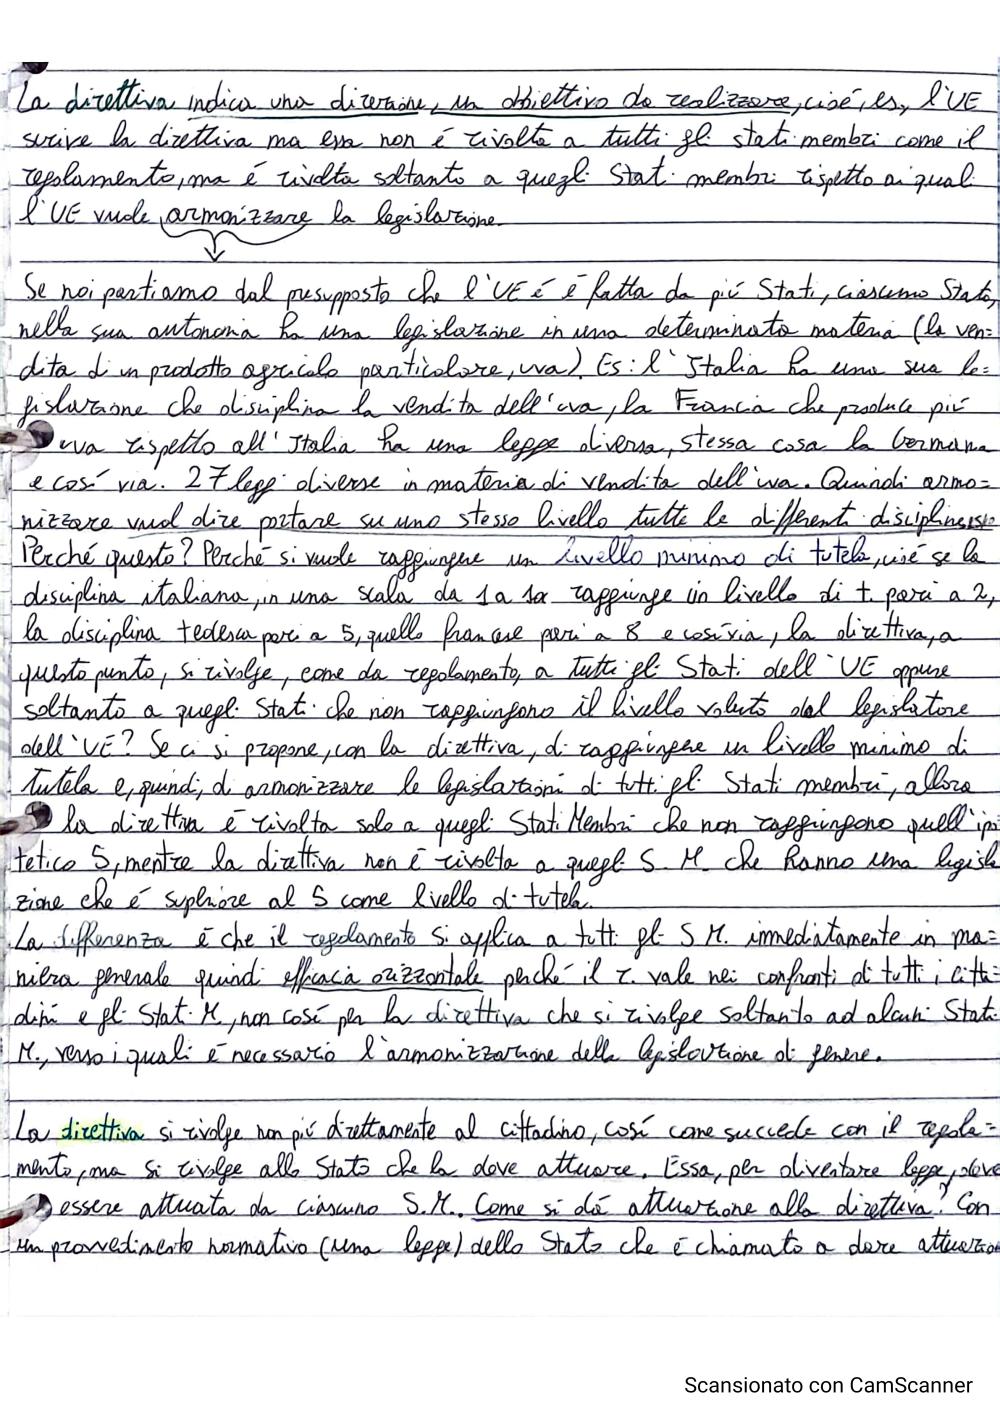 La direttiva indica una direzione, un obbiettivo da realizzare, cioé, es, l'UE
scrive la direttiva ma essa non é rivolta a tutti gli stati membri come il
regolamento, ma é rivolta soltanto a quegli Stati membri rispetto ai quali
l'UE vuole armonizzare la legislazione.
Se noi partiamo dal presupposto che l'UE é é fatta da piú Stati, ciascuno Stato,
nella sua autonomia ha una legislazione in una determinata materia (la ven=
dita di un prodotto agricolo particolare, uva). Es: l'Italia ha una sua le=
gislazione che disciplina la vendita dell'uva, la Francia che produce piú
uva rispetto all'Italia ha una legge diversa, stessa cosa la Germania
e cosí via. 27 leggi diverse in materia di vendita dell'uva. Quindi armo=
nizzare vuol dire portare su uno stesso livello tutte le differenti discipline
Perché questo? Perché si vuole raggiungere un livello minimo di tutela, cioé se la
disciplina italiana, in una scala da 1 a 10 raggiunge un livello di t. pari a 2,
la disciplina tedesca pari a 5, quella francese pari a 8 e cosí via, la direttiva, a
questo punto, si rivolge, come da regolamento, a tutti gli Stati dell'UE oppure
soltanto a quegli Stati che non raggiungono il livello voluto dal legislatore
dell'UE? Se ci si propone, con la direttiva, di raggiungere un livello minimo di
tutela e, quindi, di armonizzare le legislazioni di tutti gli Stati membri, allora
la direttiva é rivolta solo a quegli Stati Membri che non raggiungono quell'ipo
tetico 5, mentre la direttiva non é rivolta a quegli S. M. che hanno una legisla
zione che é supriore al 5 come livello di tutela.
La differenza é che il regolamento si applica a tutti gli S M. immediatamente in ma=
niera generale quindi efficacia orizzontale perché il r. vale nei confronti di tutti i citta=
dini e gli Stati M., non cosí per la direttiva che si rivolge soltanto ad alcuni Stati
M., verso i quali é necessario l'armonizzazione della legislazione di genere.
La direttiva si rivolge non piú direttamente al cittadino, cosí come succede con il regola=
mento, ma si rivolge allo Stato che la deve attuare. Essa, per diventare legge, deve
essere attuata da ciascuno S.M.. Come si dá attuazione alla direttiva? Con
un provvedimento normativo (una legge) dello Stato che é chiamato a dare attuazion
Scansionato con CamScanner